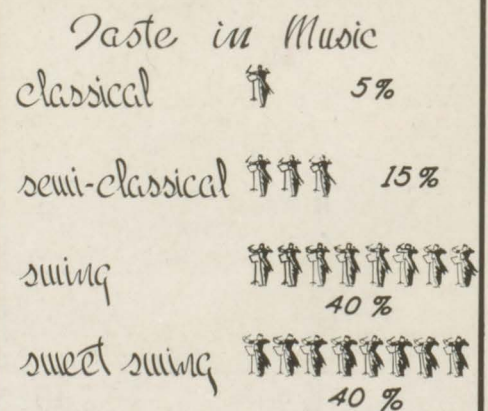 Taste in Music
classical 5%
semi-classical 15%
swing
40 %
sweet swing
40 %